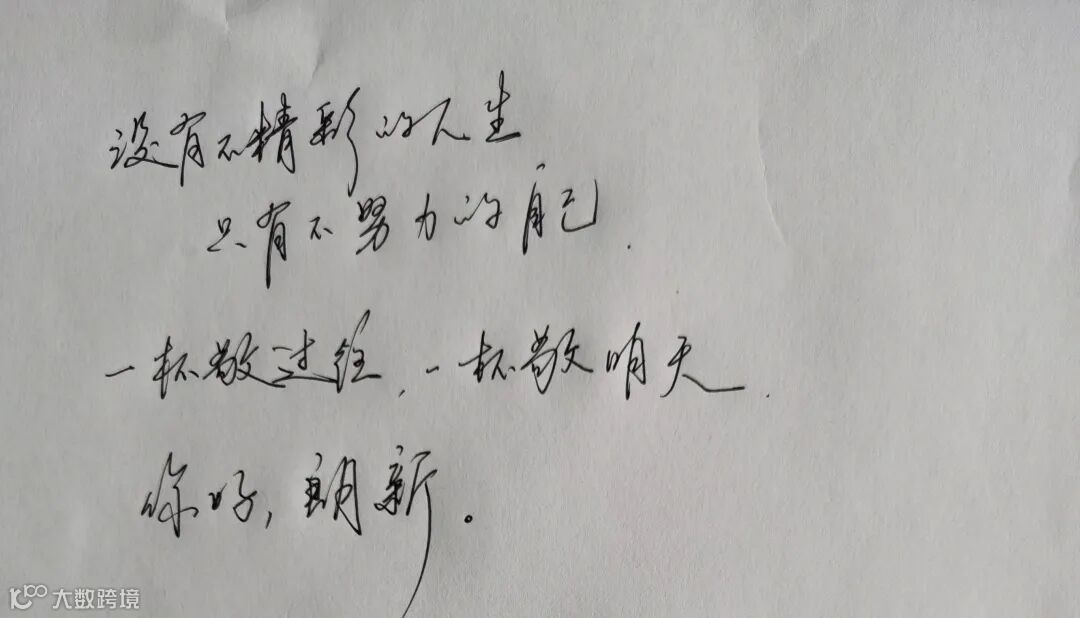 没有不精彩的人生
只有不努力的自己.
一杯敬过往,一杯敬明天.
你好,朗新。
大数跨境